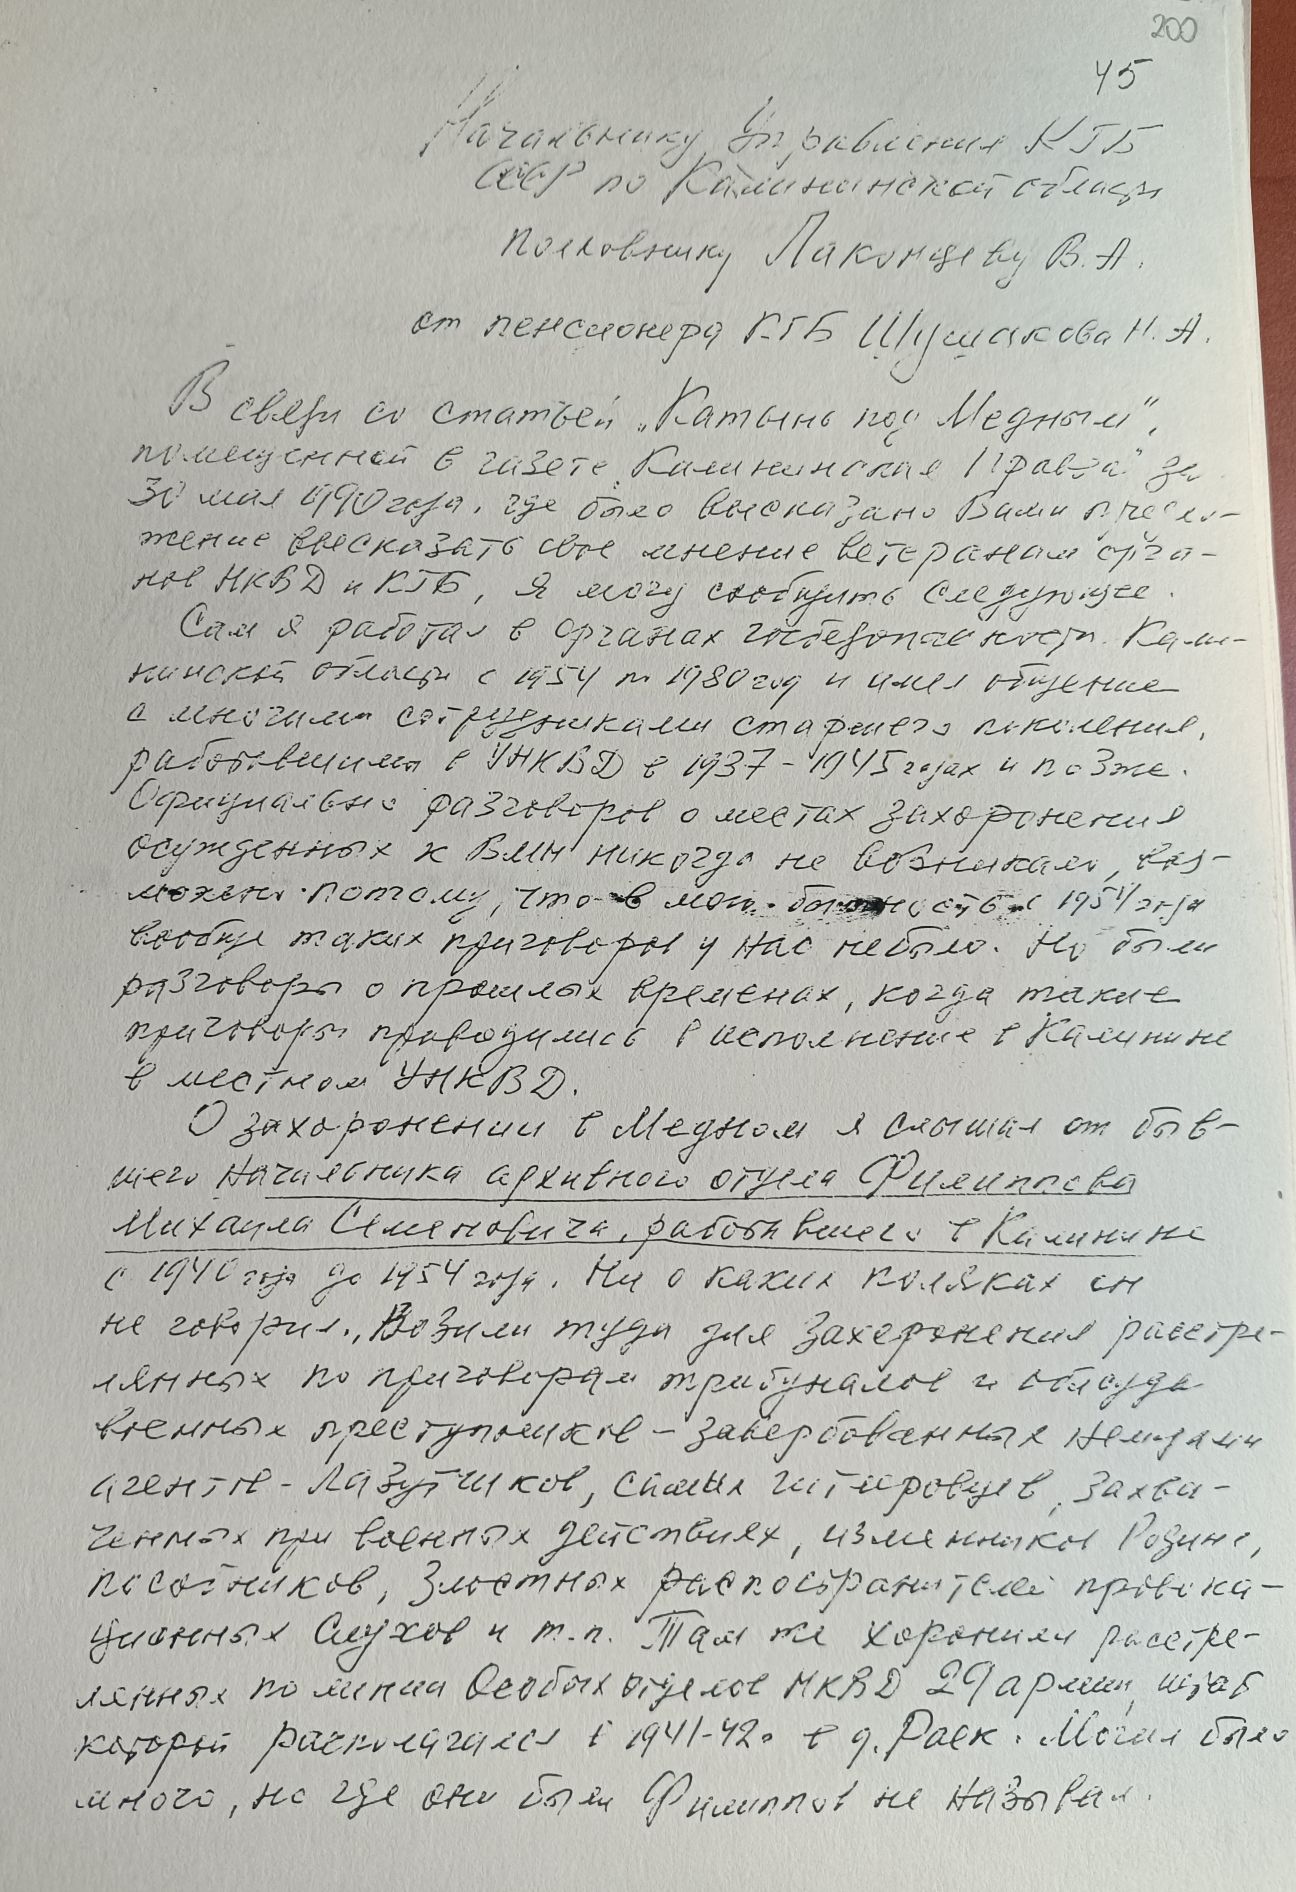 200
45
Начальнику Управления КГБ
СССР по Калининской области
полковнику Лаконцеву В. А.
от пенсионера КГБ Шушакова Н. А.
В связи со статьей „Катынь под Медным",
помещенной в газете „Калининская Правда" за
30 мая 1990 года, где было высказано Вами предло-
жение высказать свое мнение ветеранам орга-
нов НКВД и КГБ, я могу сообщить следующее.
Сам я работал в органах госбезопасности Кали-
нинской области с 1954 по 1980 год и имел общение
с многими сотрудниками старшего поколения,
работавшими в УНКВД в 1937-1945 годах и позже.
Официально разговоров о местах захоронения
осужденных к ВМН никогда не возникало, воз-
можно потому, что в мою бытность с 1954 года
вообще таких приговоров у нас не было. Но были
разговоры о прошлых временах, когда такие
приговоры приводились в исполнение в Калинине
в местном УНКВД.
О захоронении в Медном я слышал от быв-
шего Начальника архивного отдела Филиппова
Михаила Семеновича, работавшего в Калинине
с 1940 года до 1954 года. Ни о каких поляках он
не говорил. Возили туда для захоронения расстре-
лянных по приговорам трибуналов и облсуда
военных преступников – завербованных немцами
агентов-лазутчиков, самих гитлеровцев, захва-
ченных при военных действиях, изменников Родине,
пособников, злостных распространителей провока-
ционных слухов и т.п. Там же хоронили расстре-
лянных по линии Особых отделов НКВД 29 армии, штаб
которой располагался в 1941-42г. в д. Раек. Могил было
много, но где они были Филиппов не называл.